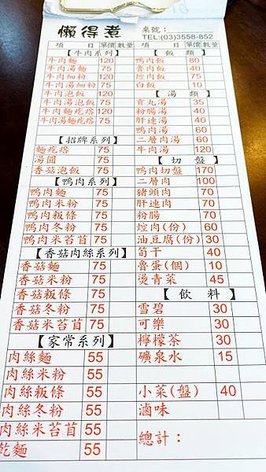 懶得煮
桌號:
TEL:(03)3558-852
項 目 單價 數量 項 目 單價 數量
【牛肉系列】 【飯 類】
牛肉麵 120 鴨肉飯 80
牛肉粉條 120
牛肉細粉 120 75
牛肉泡飯 120 白飯 10
牛肉湯泡飯 75 【湯 類】
牛肉湯細粉 75 貢丸湯 35
牛肉湯麵 75
牛肉湯麵疙瘩 75
【招牌系列】 二層肉湯 60
麵疙瘩 75 牛肉湯 120
湯圓 75 【切 盤】
香菇泡飯 75 鴨肉切盤 170
【鴨肉系列】 二層肉 100
鴨肉麵 75 豬頭肉 70
鴨肉米粉 75 肝連肉 70
鴨肉粄條 75 粉腸 70
鴨肉冬粉 75 焢肉(份) 60
鴨肉米苔苜 75 油豆腐(份) 30
【香菇肉絲系列】 筍干 40
香菇麵 75 魯蛋(個) 10
香菇米粉 75 燙青菜 45
香菇粄條 75 【飲 料】
香菇冬粉 75 雪碧 30
香菇米苔苜 75 可樂 30
【家常系列】 檸檬茶 30
肉絲麵 55 礦泉水 15
肉絲米粉 55
肉絲粄條 55 小菜(盤) 40
肉絲冬粉 55 滷味
肉絲米苔苜 55 總計:
乾麵 55